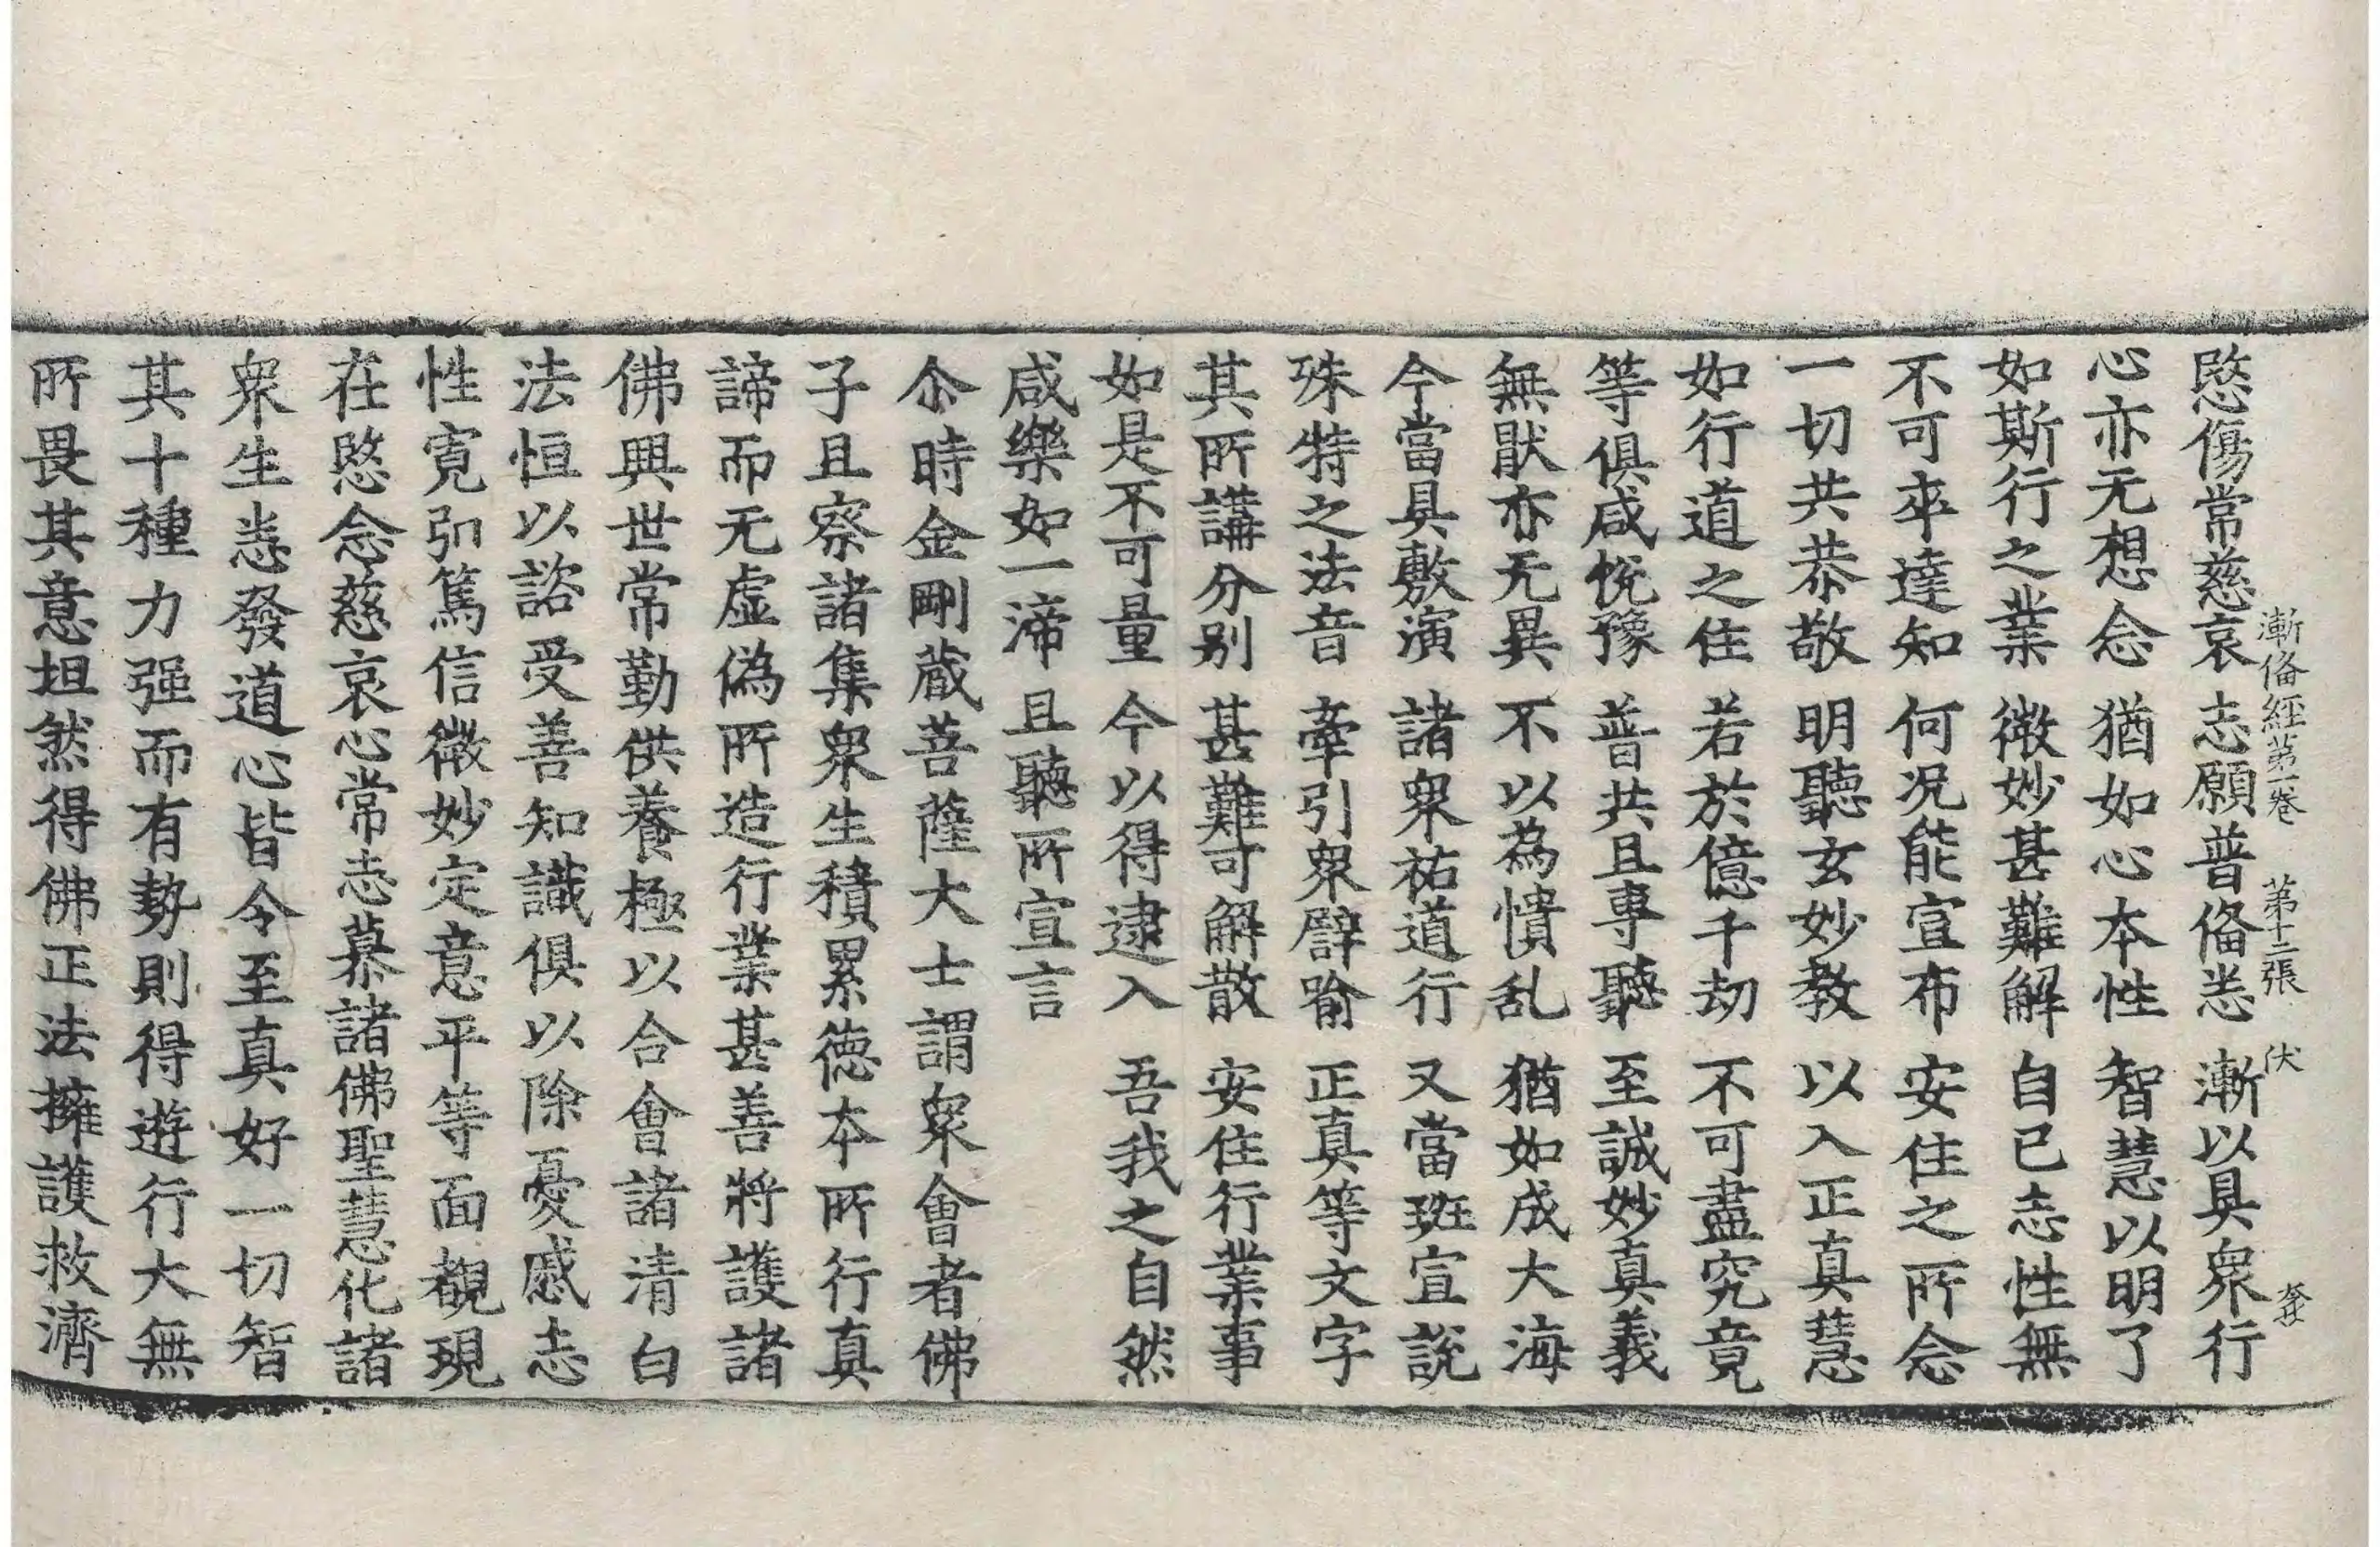 漸俻經第一卷 第十二張 伏
愍傷常慈哀 志願普俻悉 漸以具衆行
心亦无想念 猶如心本性 智慧以明了
如斯行之業 微妙甚難解 自已志性無
不可卒達知 何况能宣布 安住之所念
一切共恭敬 明聽玄妙教 以入正真慧
如行道之住 若於億千劫 不可盡究竟
等俱咸悅豫 普共且專聽 至誠妙真義
無猒亦无異 不以為憒乱 猶如成大海
今當具敷演 諸衆祐道行 又當班宣說
殊特之法音 牽引衆譬喻 正真等文字
其所講分别 甚難可解散 安住行業事
如是不可量 今以得逮入 吾我之自然
咸樂如一渧 且聽所宣言
尒時金剛蔵菩薩大士謂衆會者佛
子且察諸集衆生積累德本所行真
諦而无虛偽所造行業甚善將護諸
佛興世常勤供養極以合會諸清白
法恒以諮受善知識俱以除憂慼志
性寛弘篤信微妙定意平等面覩現
在愍念慈哀心常志慕諸佛聖慧化諸
衆生悉發道心皆令至真好一切智
其十種力强而有勢則得遊行大無
所畏其意坦然得佛正法擁護救濟